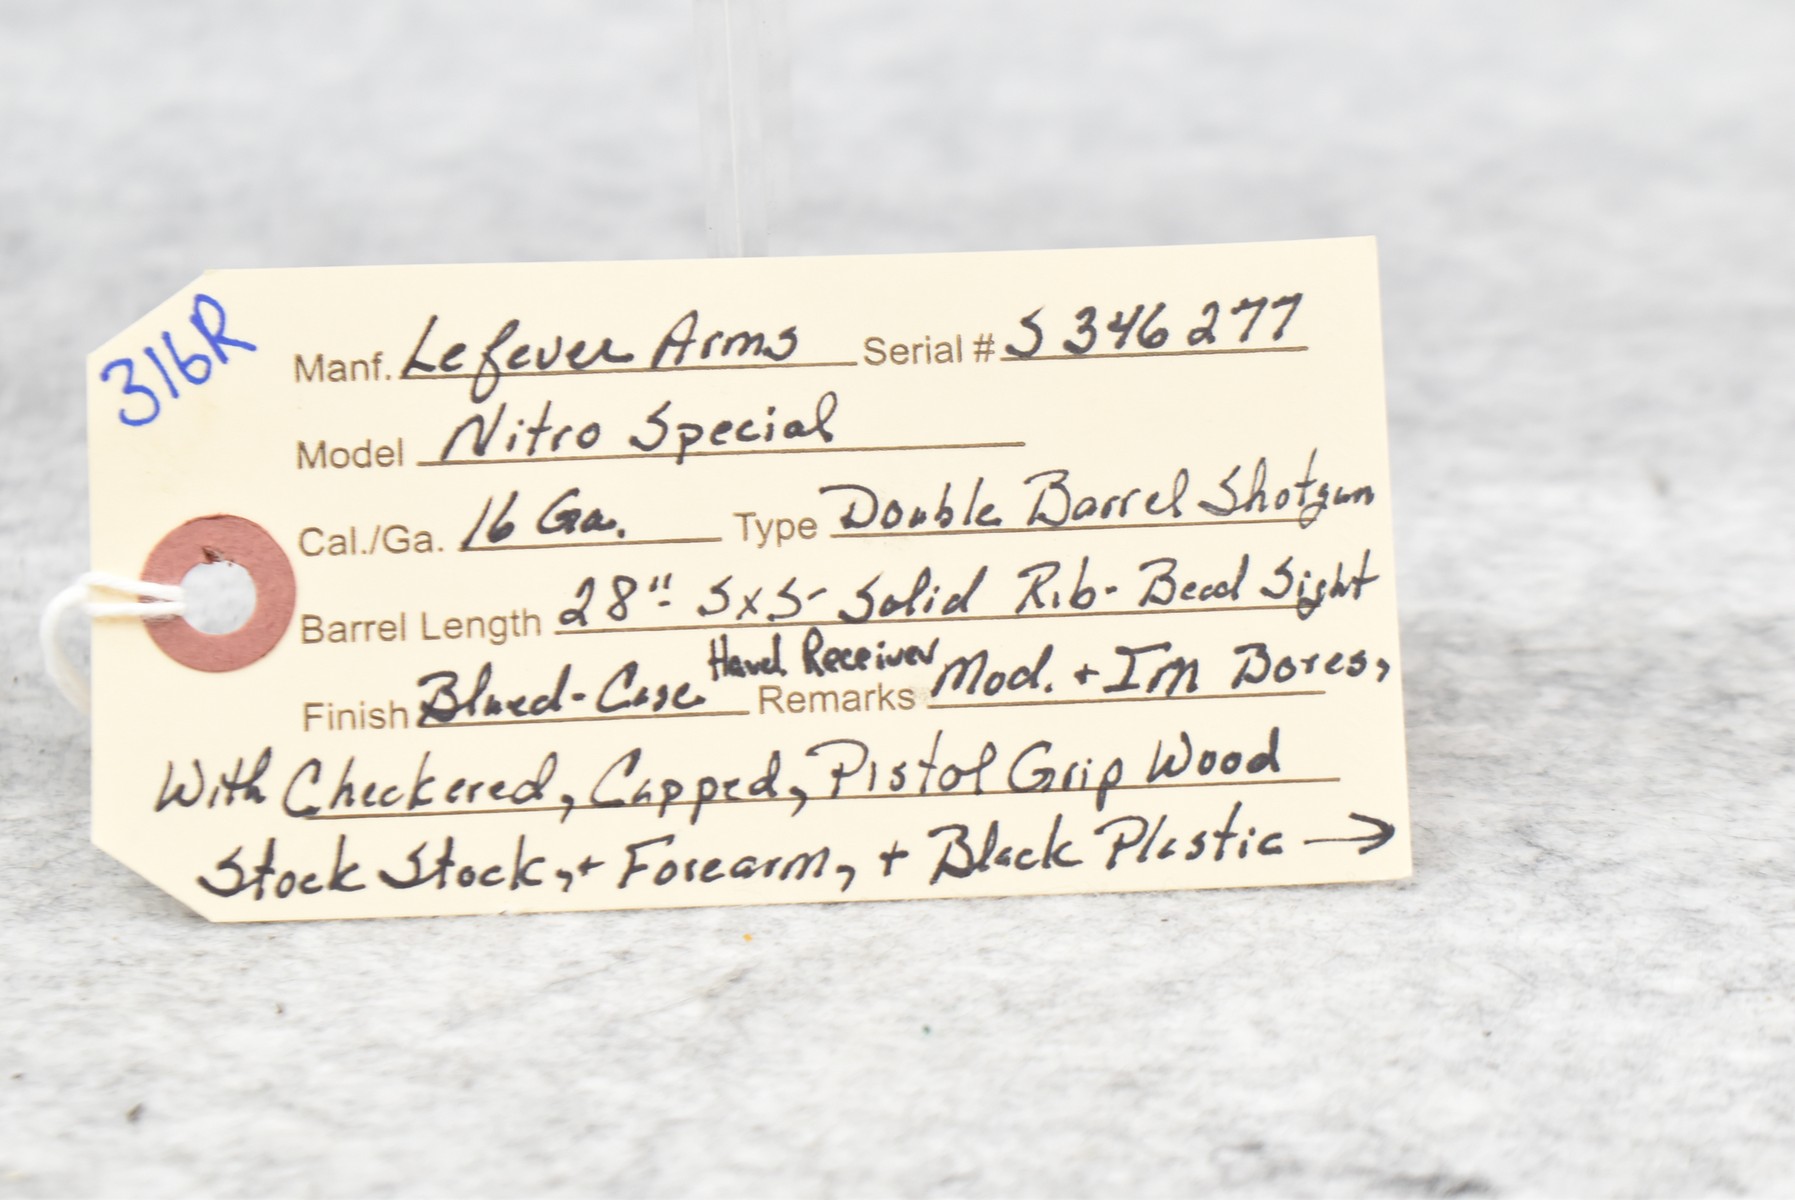 316R
Manf. Lefever Arms Serial # S346277
Model Nitro Special
Cal./Ga. 16 Ga. Type Double Barrel Shotgun
Barrel Length 28"- SxS- Solid Rib- Bead Sight
Finish Blued-Case Hard Receiver Remarks Mod. + Im Bores,
With Checkered, Capped, Pistol Grip Wood
Stock Stock, + Forearm, + Black Plastic →